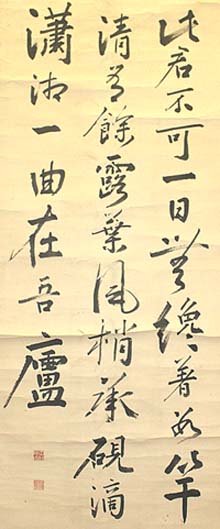 此君不可一日無纔著數竿
清有餘露葉風梢承硯滴
瀟湘一曲在吾廬